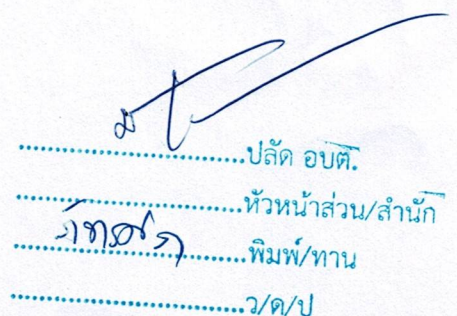 ....................ปลัด อบต.
....................หัวหน้าส่วน/สำนัก
....................พิมพ์/ทาน
....................ว/ด/ป